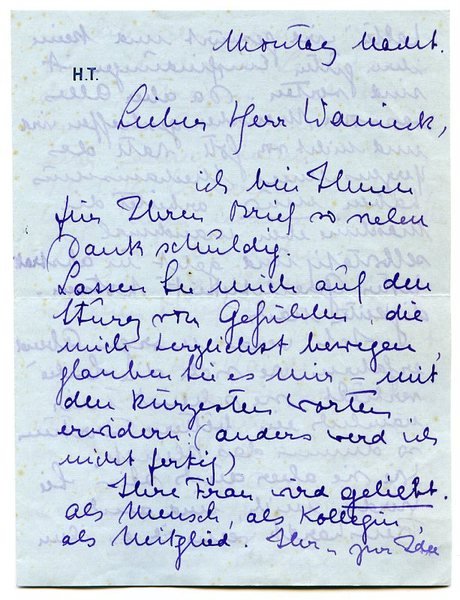 Montag Nacht.
H.T.
Lieber Herr Wanieck,
ich bin Ihnen
für Ihren Brief so vielen
Dank schuldig.
Lassen Sie mich auf den
Sturz von Gefühlen, die
mich herzlichst bewegen,
glauben Sie es mir – mit
den kürzesten Worten
erwidern. (anders werd ich
nicht fertig)
Ihre Frau wird geliebt.
als Mensch, als Kollegin,
als Mitglied. Ihr – zur Idee